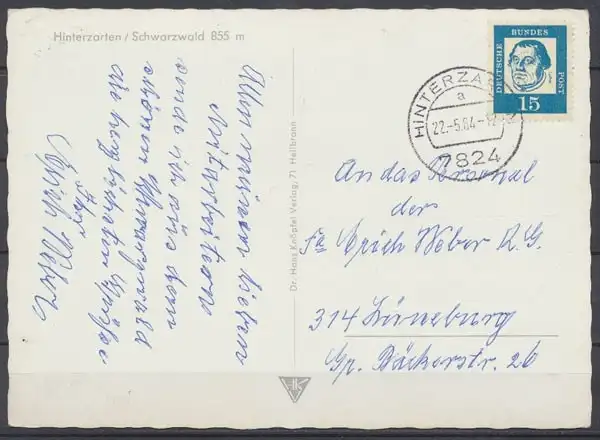 Hinterzarten / Schwarzwald 855 m
Allen meinen lieben
Mitarbeitern
sende ich aus dem
schönen Schwarzwald
die herzlichsten Grüße
Ihr
Dr. Hans Knöpfel Verlag, 71 Heilbronn
DEUTSCHE BUNDES POST
15
HINTERZARTEN
a
22.-5.64.-
7824
An das Personal
der
Fa Erich Weber K.G.
314 Lüneburg
Gr. Bäckerstr. 26